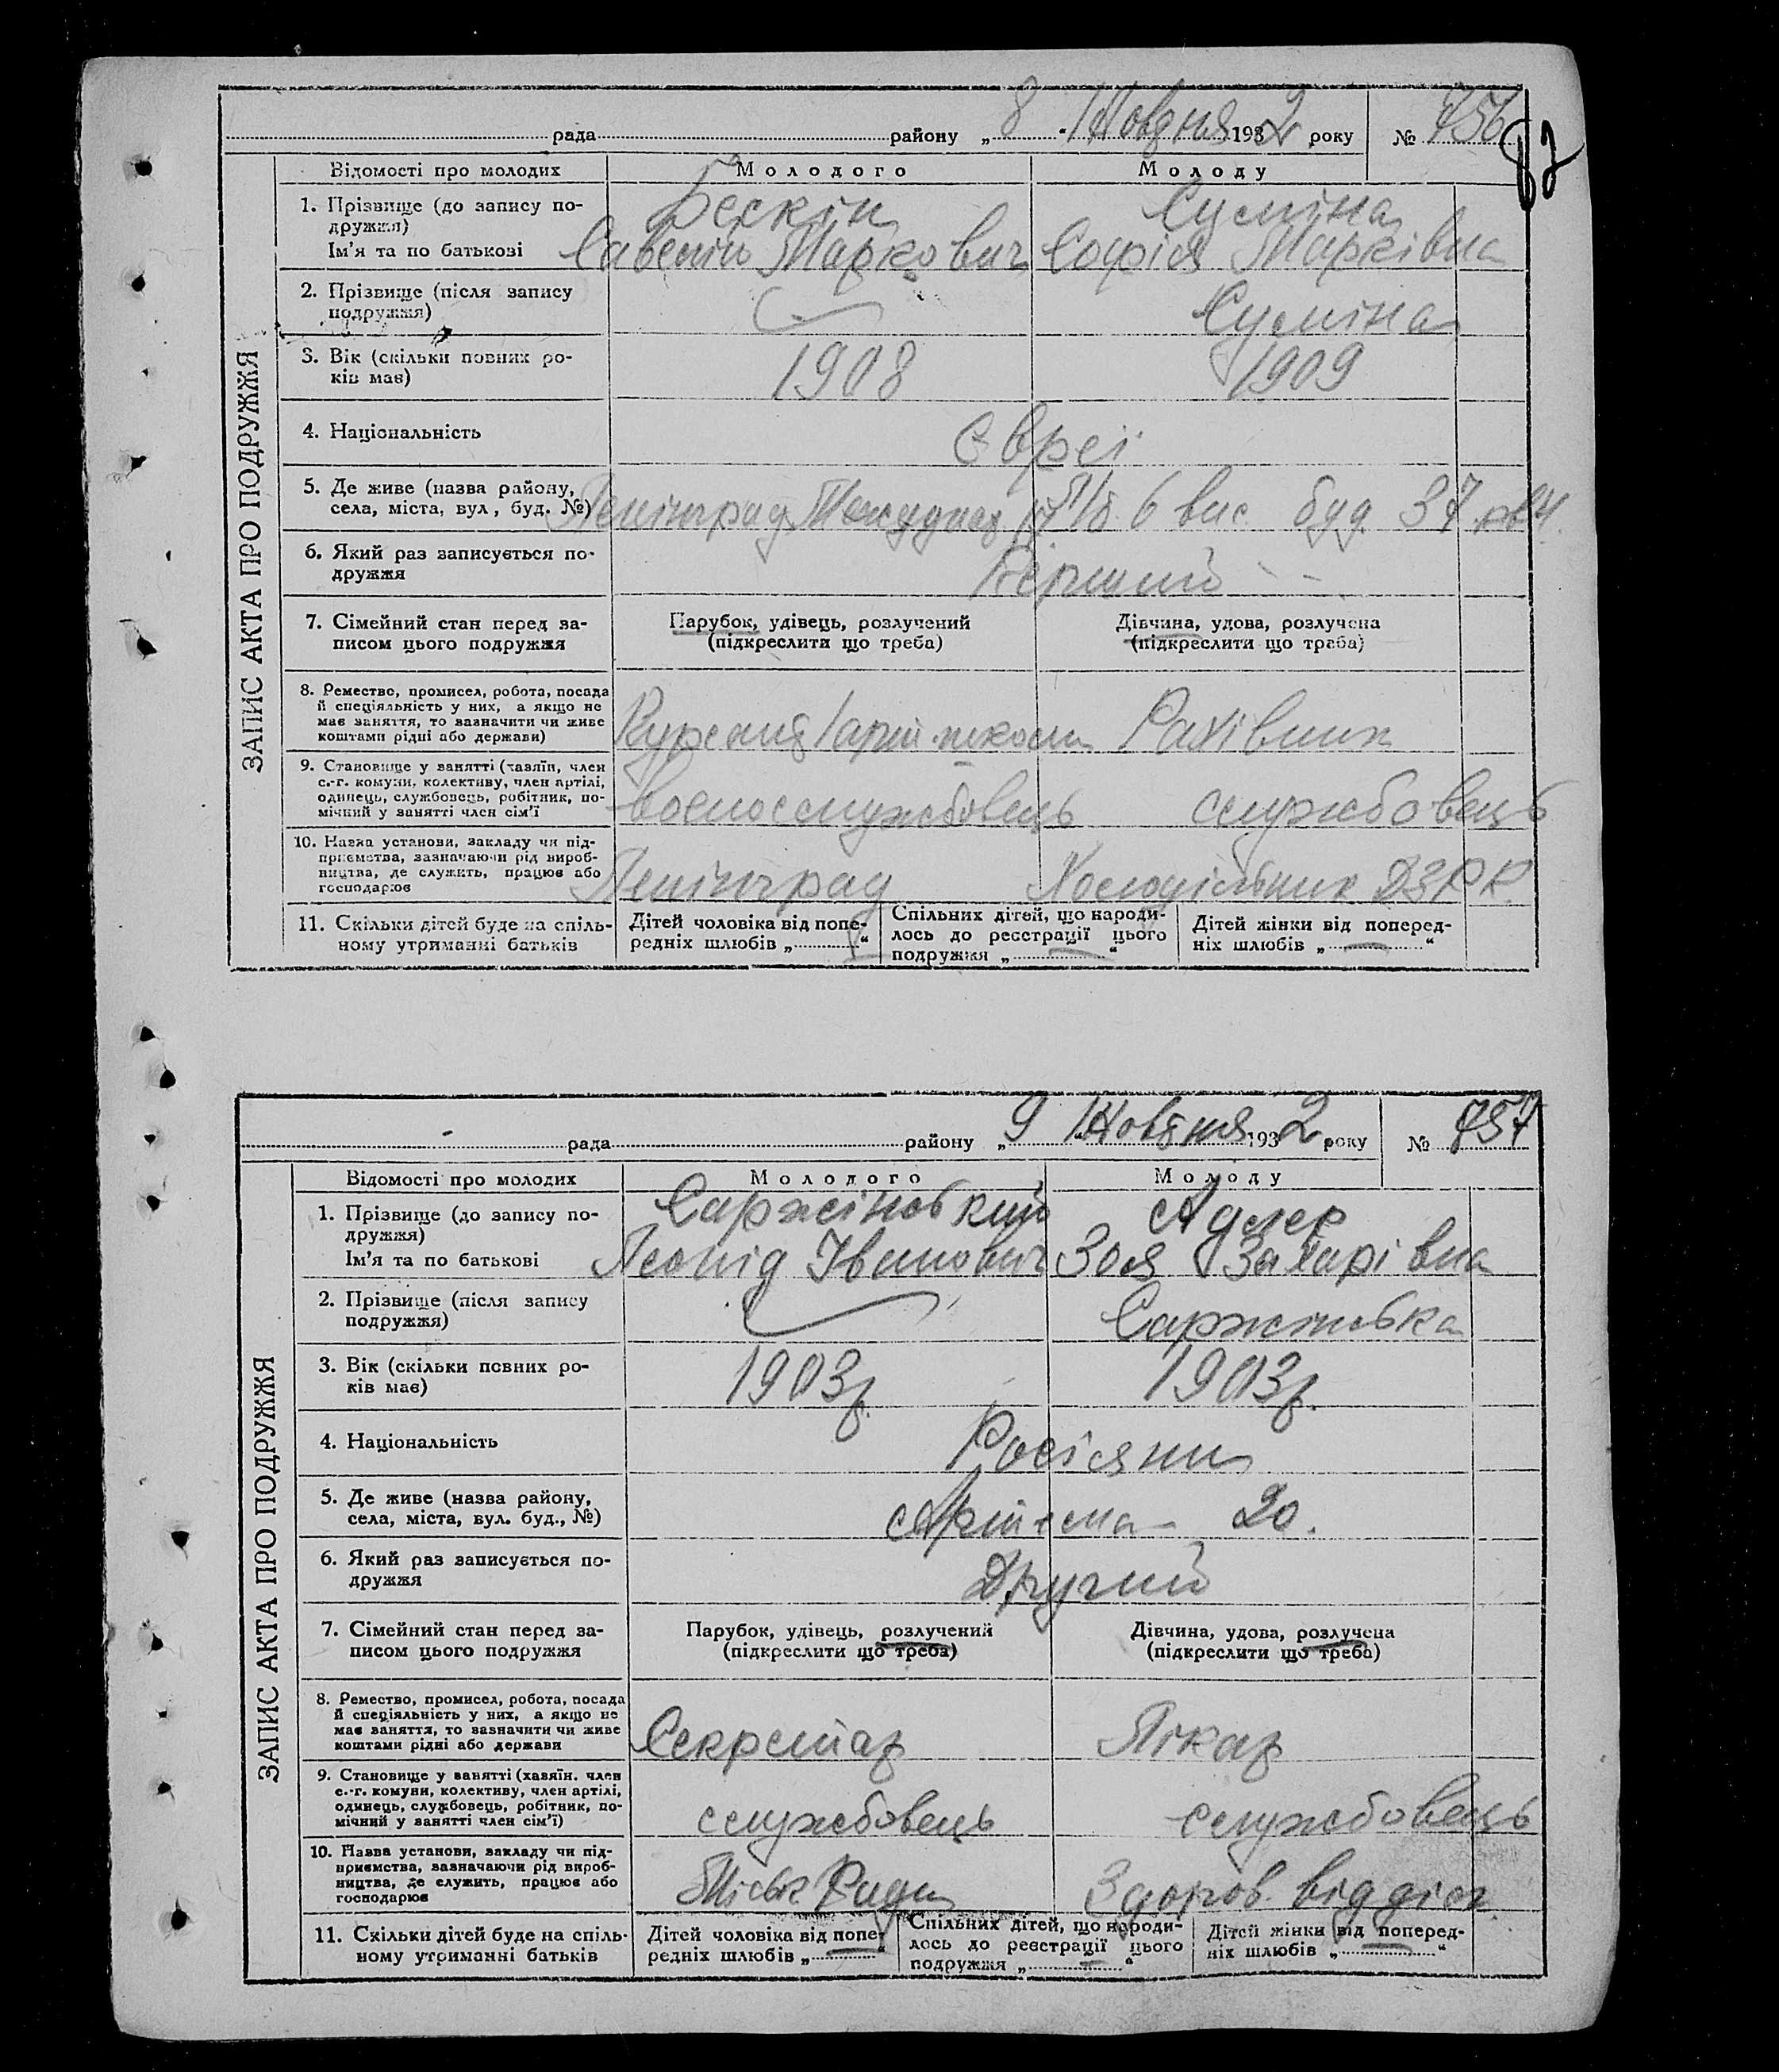 рада района „ 8 “ Жовтня 1932 року № 756
82
ЗАПИС АКТА ПРО ПОДРУЖЖЯ
Відомості про молодих Молодого Молоду
1. Прізвище (до запису по- Бескін Суміна
дружжя)
Ім'я та по батькові Савелій Маркович Софія Марківна
2. Прізвище (після запису
подружжя) Суміна
3. Вік (скільки повних ро- 1908 1909
ків має)
4. Національність Євреї
5. Де живе (назва району,
села, міста, вул, буд. №) Ленінград 6 вис. буд. 37 кв 4.
6. Який раз записується по-
дружжя Перший
7. Сімейний стан перед за- Парубок, удівець, розлучений Дівчина, удова, розлучена
писом цього подружжя (підкреслити що треба) (підкреслити що треба)
8. Ремество, промисел, робота, посада
й спеціяльність у них, а якщо не
має заняття, то зазначити чи живе
коштами рідні або держави) Курсант Рахівник
9. Становище у занятті (хазяїн, член
с.-г. комуни, колективу, член артілі,
одинець, службовець, робітник, по-
мічний у занятті член сім'ї військослужбовець службовець
10. Назва установи, закладу чи під-
приємства, зазначаючи рід вироб-
ництва, де служить, працює або
господарює Ленінград ДЗРК
11. Скільки дітей буде на спіль- Дітей чоловіка від попе- Спільних дітей, що народи- Дітей жінки від поперед-
ному утриманні батьків редніх шлюбів „ “ лось до реєстрації цього ніх шлюбів „ “
подружжя „ “
рада району „ 9 Жовтня 1932 року № 757
ЗАПИС АКТА ПРО ПОДРУЖЖЯ
Відомості про молодих Молодого Молоду
1. Прізвище (до запису по- Саржінський Адлер
дружжя)
Ім'я та по батькові Леонід Іванович Зоя Захарівна
2. Прізвище (після запису
подружжя) Саржінська
3. Вік (скільки повних ро- 1903 р. 1903 р.
ків має)
4. Національність Росіяни
5. Де живе (назва району,
села, міста, вул. буд., №) Артема 20.
6. Який раз записується по-
дружжя Другий
7. Сімейний стан перед за- Парубок, удівець, розлучений Дівчина, удова, розлучена
писом цього подружжя (підкреслити що треба) (підкреслити що треба)
8. Ремество, промисел, робота, посада
й спеціяльність у них, а якщо не
має заняття, то зазначити чи живе
коштами рідні або держави Секретар Лікар
9. Становище у занятті (хазяїн. член
с.-г. комуни, колективу, член артілі,
одинець, службовець, робітник, по-
мічний у занятті член сім'ї) службовець службовець
10. Назва установи, закладу чи під-
приємства, зазначаючи рід вироб-
ництва, де служить, працює або
господарює Міськ Рада Здоров. відділ.
11. Скільки дітей буде на спіль- Дітей чоловіка від попе- Спільних дітей, що народи- Дітей жінки від поперед-
ному утриманні батьків редніх шлюбів „ “ лось до реєстрації цього ніх шлюбів „ “
подружжя „ “